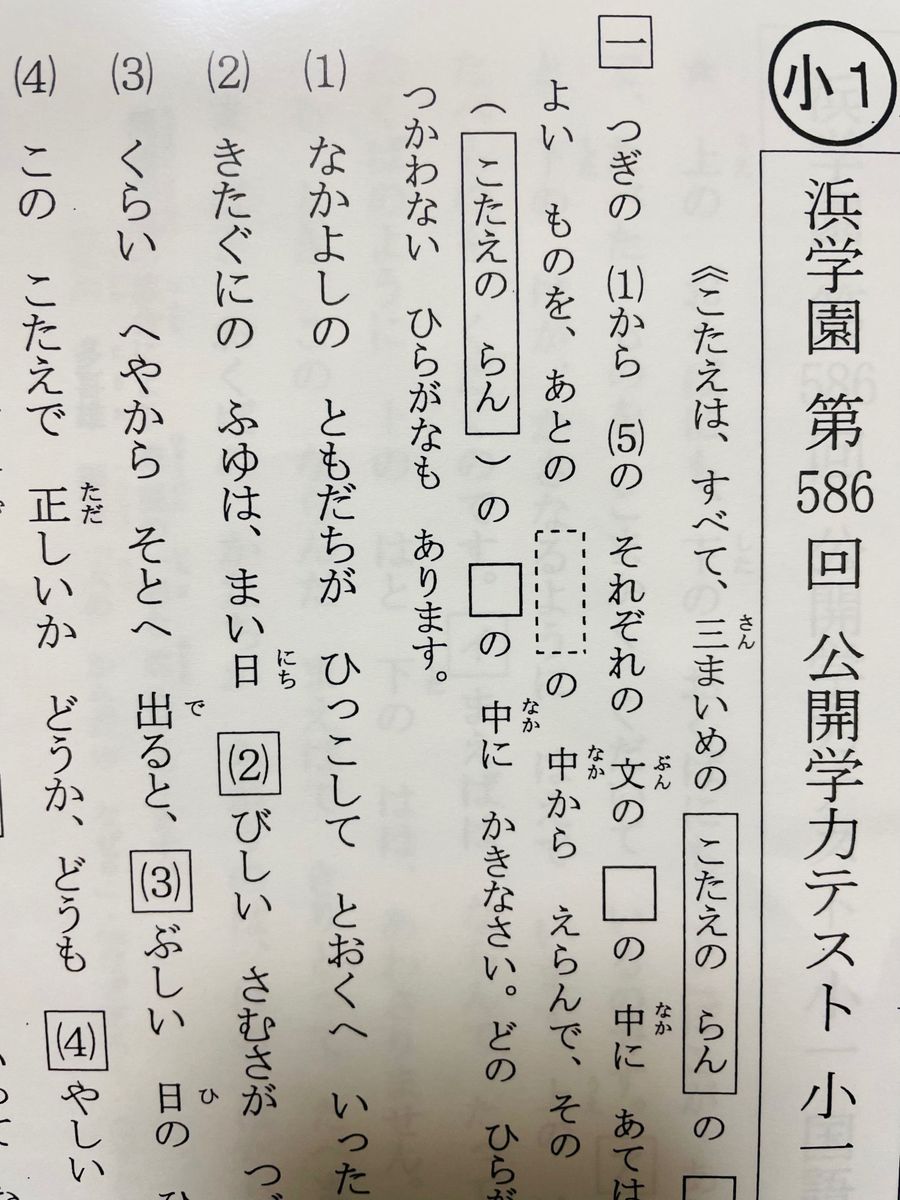 小1
浜学園 第586回 公開学力テスト 小一
《こたえは、すべて、三まいめの こたえの らん の
一 つぎの (1)から (5)の それぞれの 文の □の 中に あては
よい ものを、あとの の 中から えらんで、その
(こたえの らん)の □の 中に かきなさい。どの ひらが
つかわない ひらがなも あります。
(1) なかよしの ともだちが ひっこして とおくへ いった
(2) きたぐにの ふゆは、まい日 (2)びしい さむさが つ
(3) くらい へやから そとへ 出ると、(3)ぶしい 日の ひ
(4) この こたえで 正しいか どうか、どうも (4)やしい
さん
ぶん
なか
なか
なか
にち
で
ひ
ただ